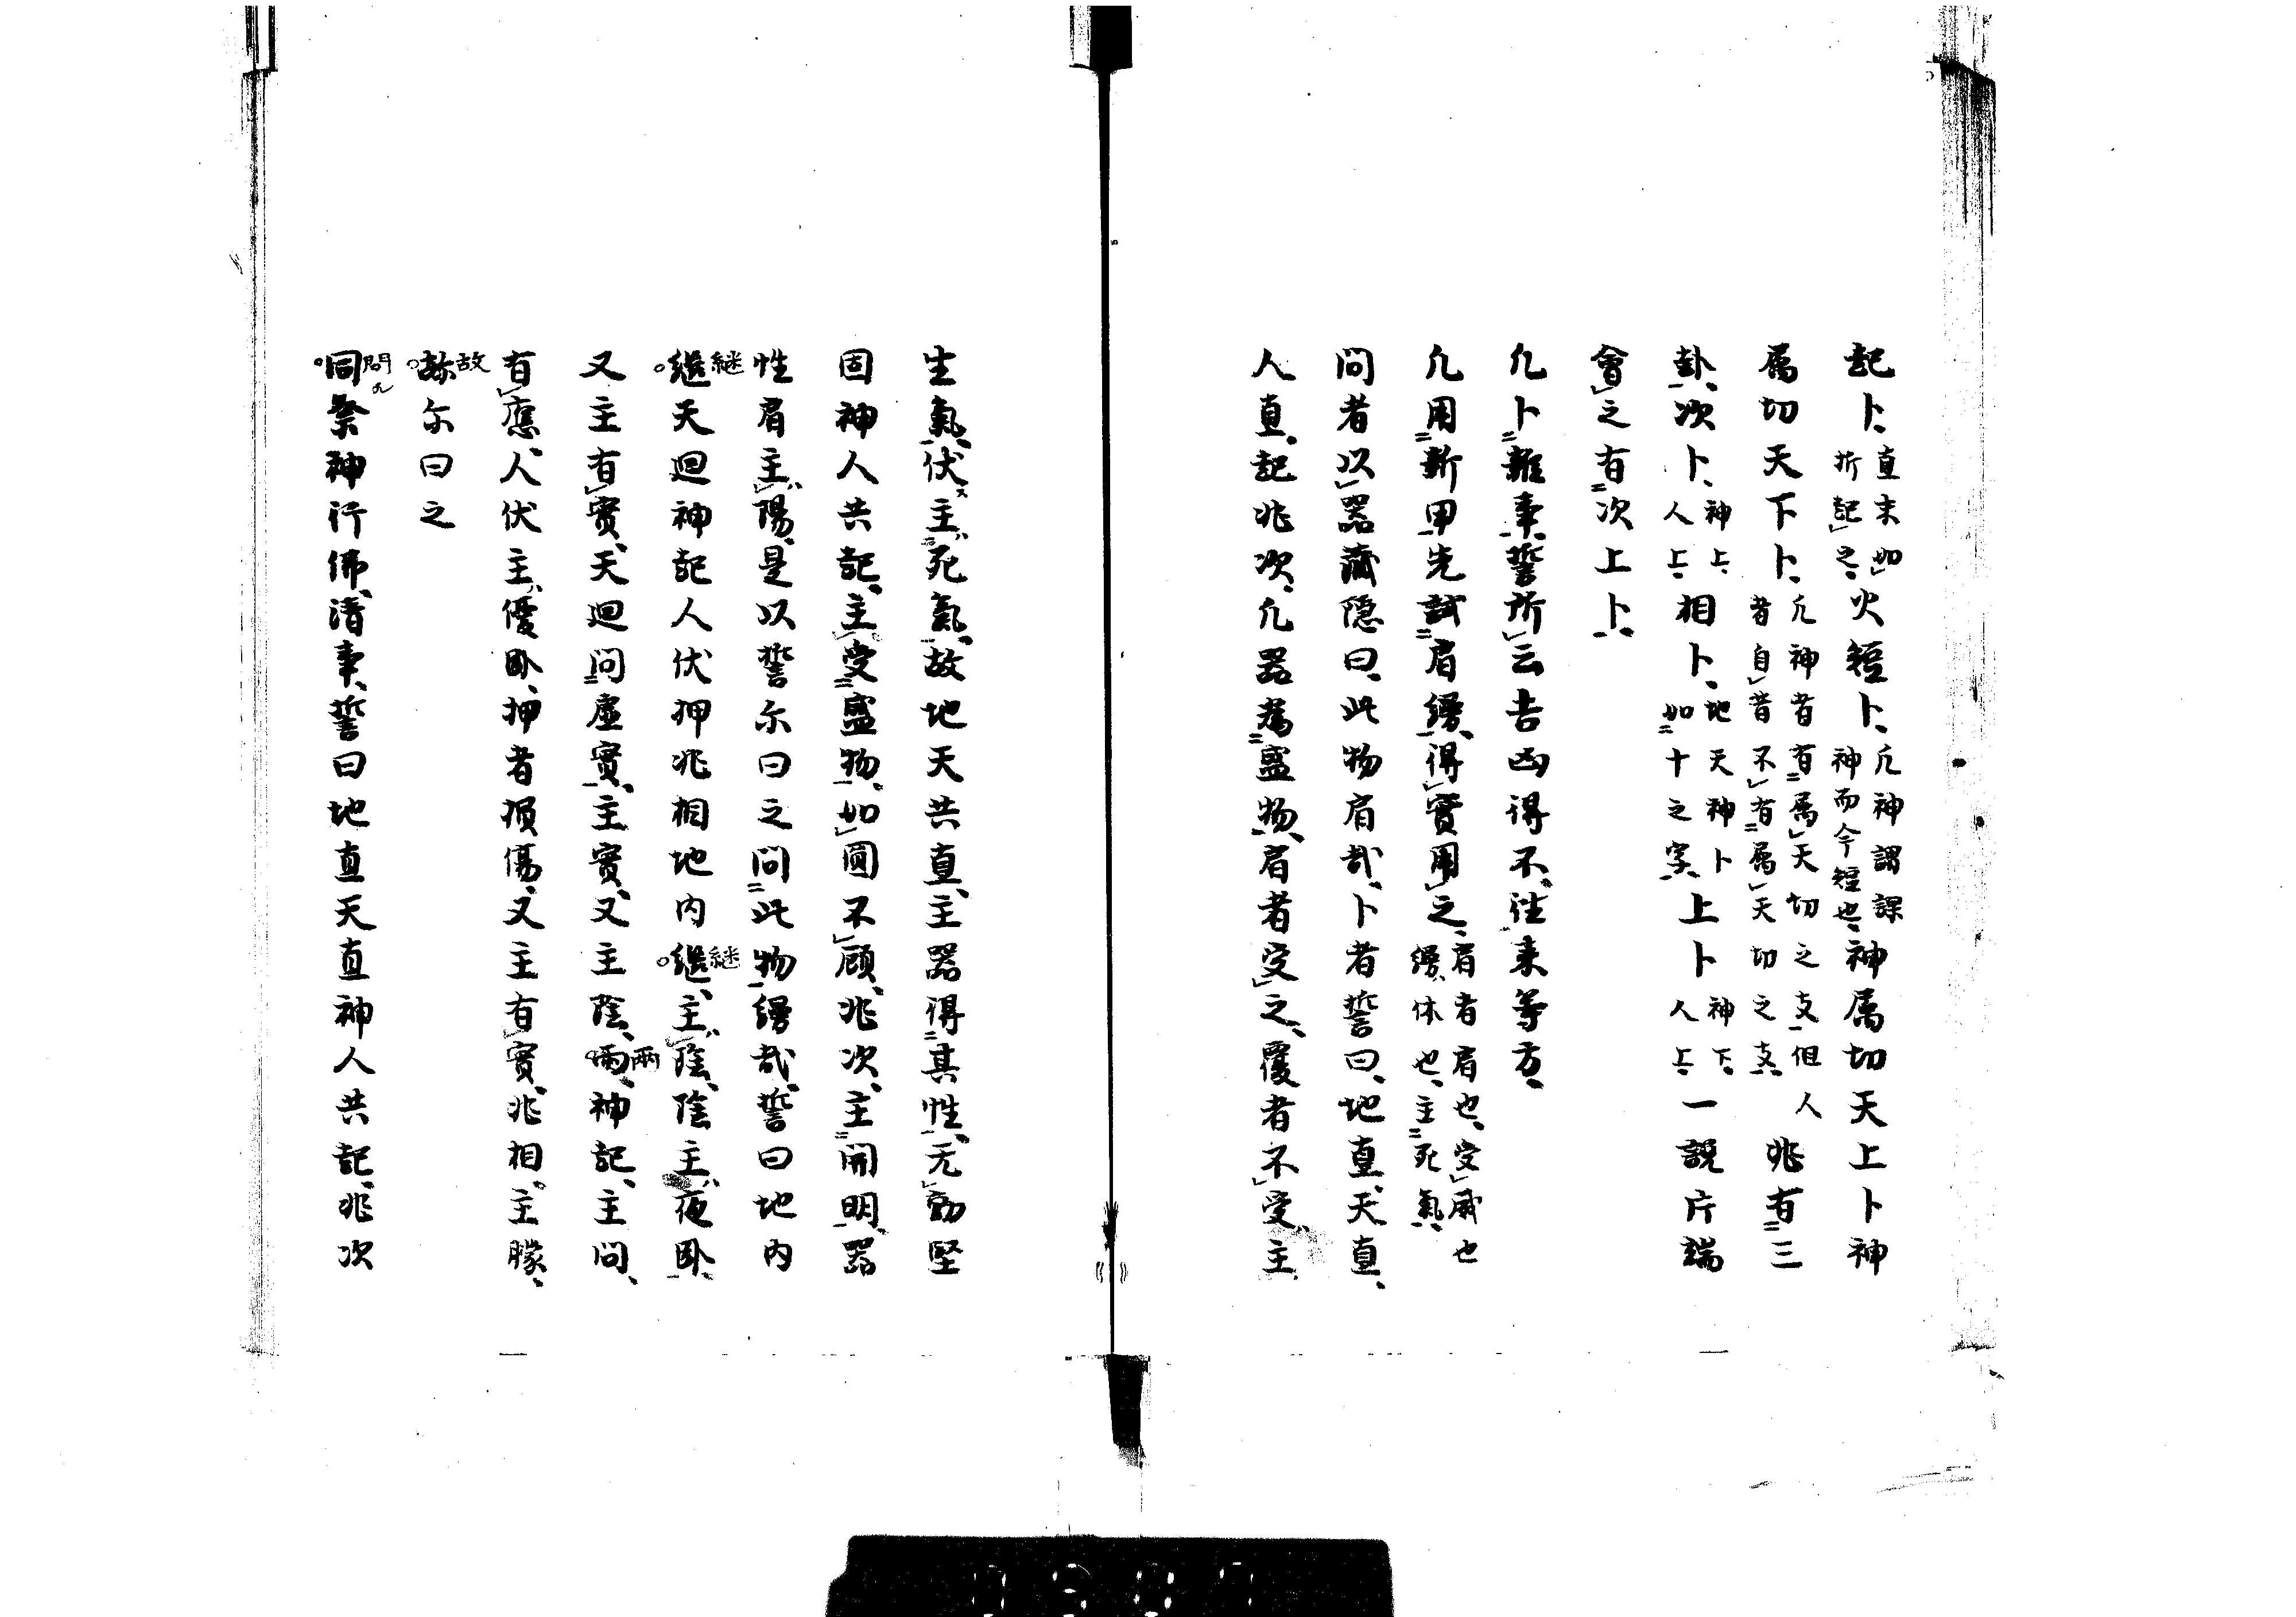 記卜、直末如折記之、火短卜、凡神謂課神而今短也、神属切天上卜神
属切天下卜、凡神者有属天切之支、但人者自昔不有属天切之支、兆有三
卦、次卜、神上、人上、相卜、地天神卜如十之字、上卜神下、人上、一説片端
會之有次上卜、
凡卜雜事誓所云吉凶得不、往来等方、
凡用新甲先試肩縵、得實用之、肩者肩也、受威也縵、休也、主死氣、
問者以器蔵隠曰、此物肩哉、卜者誓曰、地直、天直、
人直、記兆次、凡器為盛物、肩者受之、覆者不受、主
生氣、伏主死氣、故地天共直、主器得其性、无動堅
固神人共記、主受盛物、如圓不顧、兆次、主開明、器
性肩主陽、是以誓尓曰之問此物縵哉、誓曰地内
継継天迴神記人伏押兆相地内継継、主陰、陰主夜臥、
又主有實、天迴問虚實、主實、又主陰、兩兩、神記、主問、
有應、人伏主優臥、押者損傷、又主有實、兆相、主朦、
故故尓曰之
同問祭神行佛、清事、誓曰地直天直神人共記、兆次